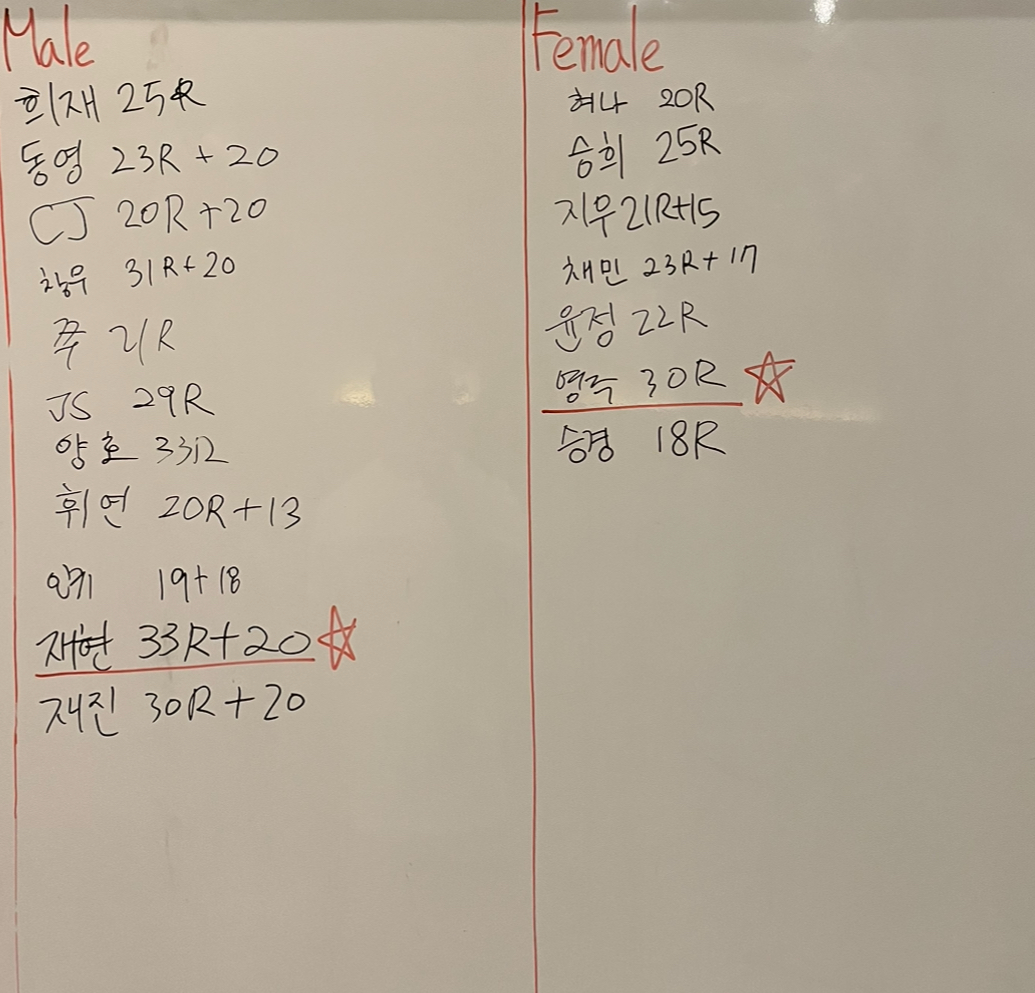 Male
희재 25R
동영 23R + 20
CJ 20R+20
창우 31R+20
쭈 21R
JS 29R
양호 33R
휘연 20R+13
19+18
재현 33R+20
재진 30R+20
Female
혀나 20R
승희 25R
지우 21R+15
채민 23R+17
윤정 22R
영주 30R
승경 18R